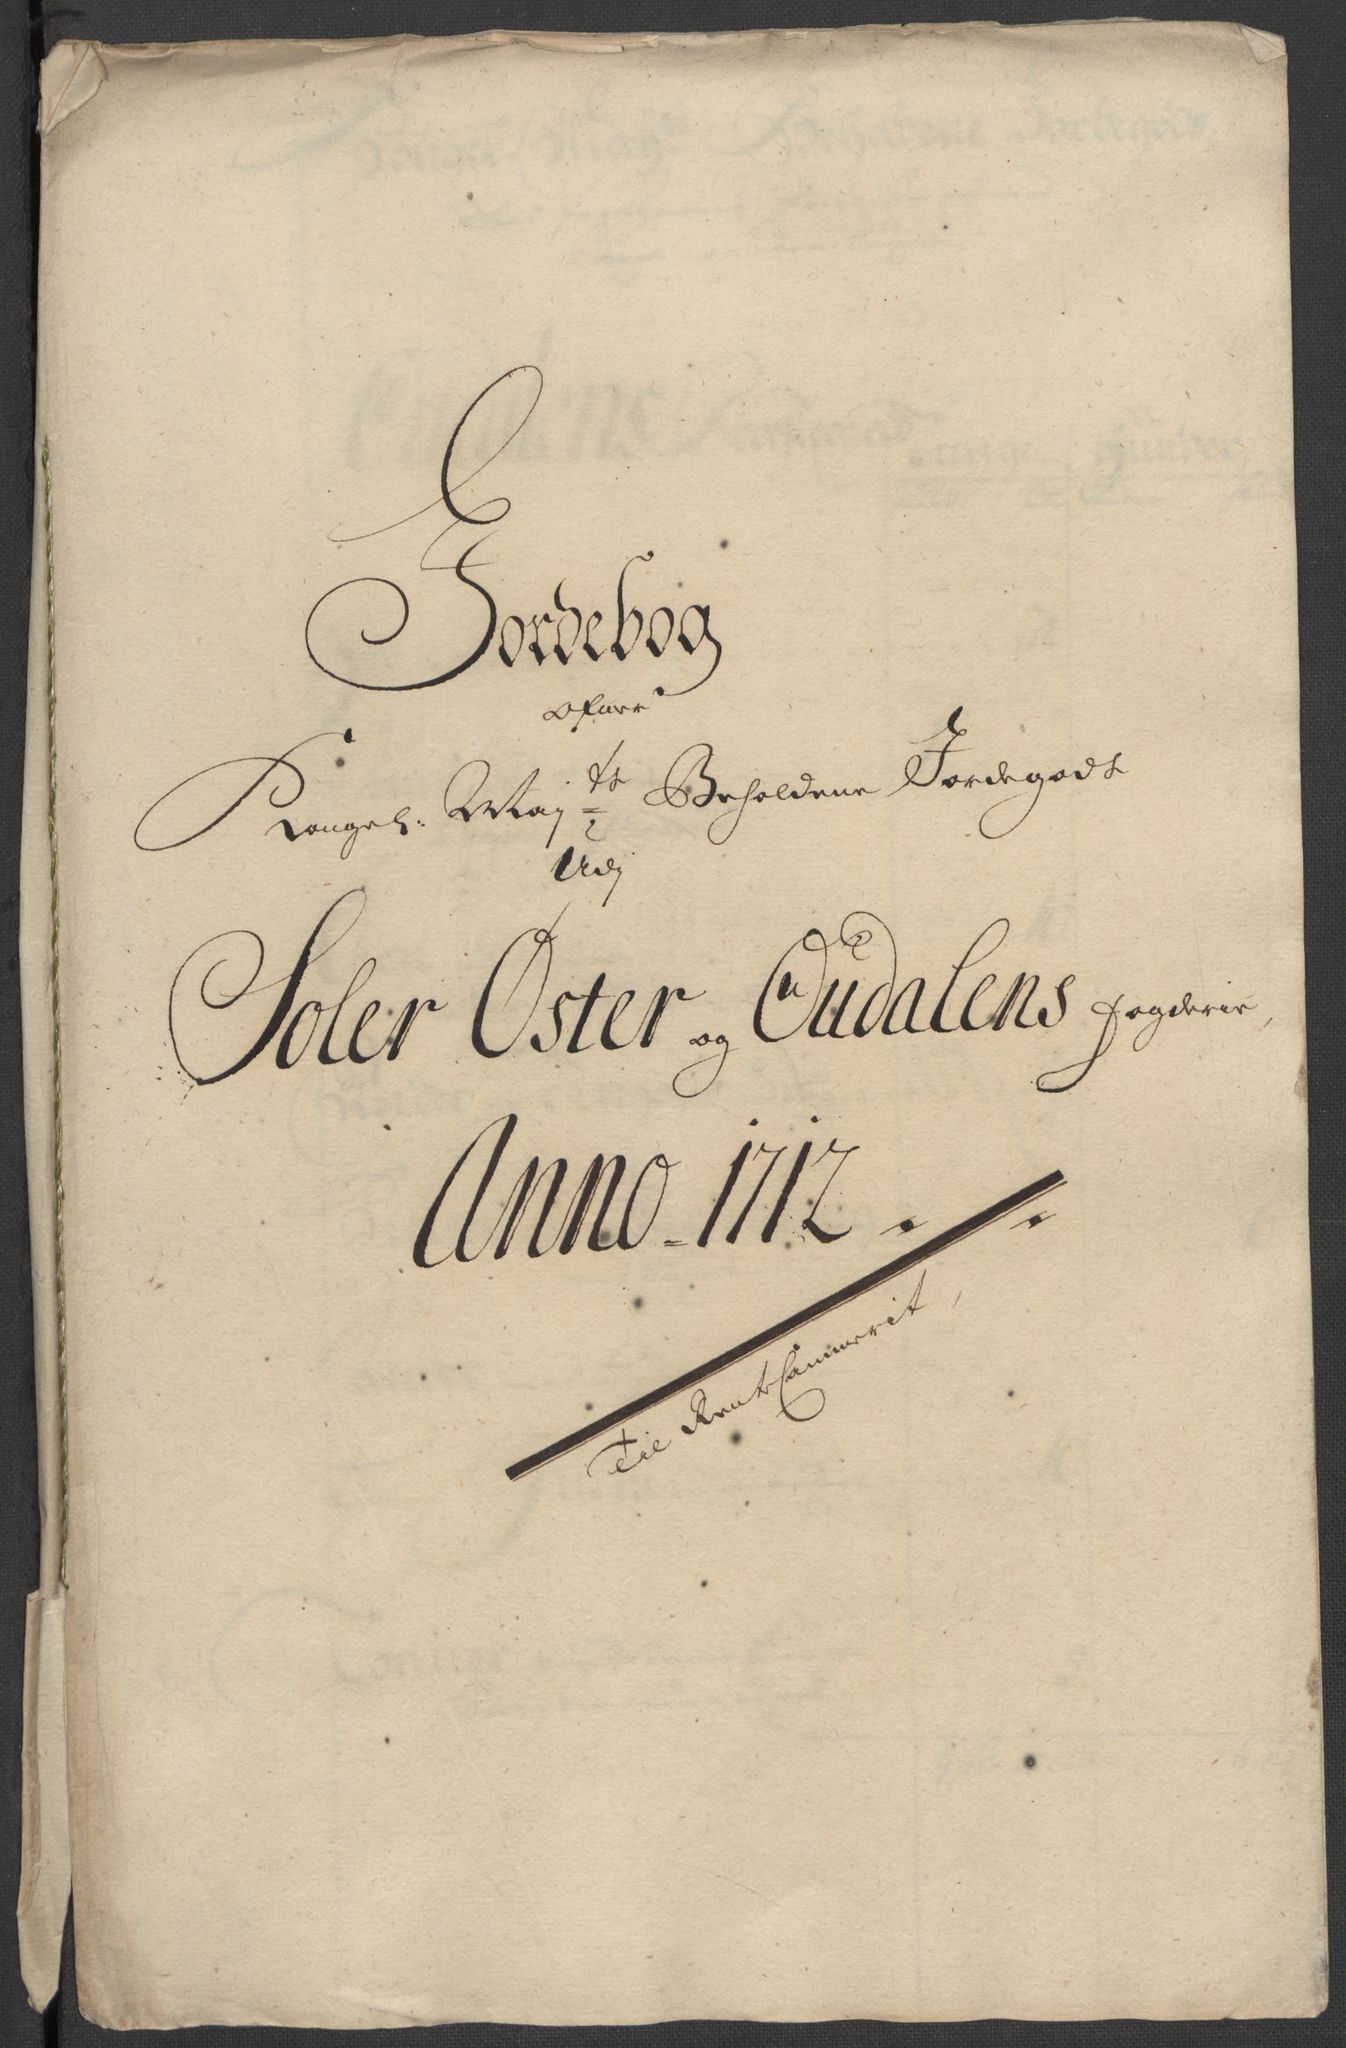 Jordebog
ofuer
Kongel: Maj:ts Beholdene Jordegods
Udj
Soler Øster og Oudalens fogderie,
Anno 1712
Til Rente Cammerit,